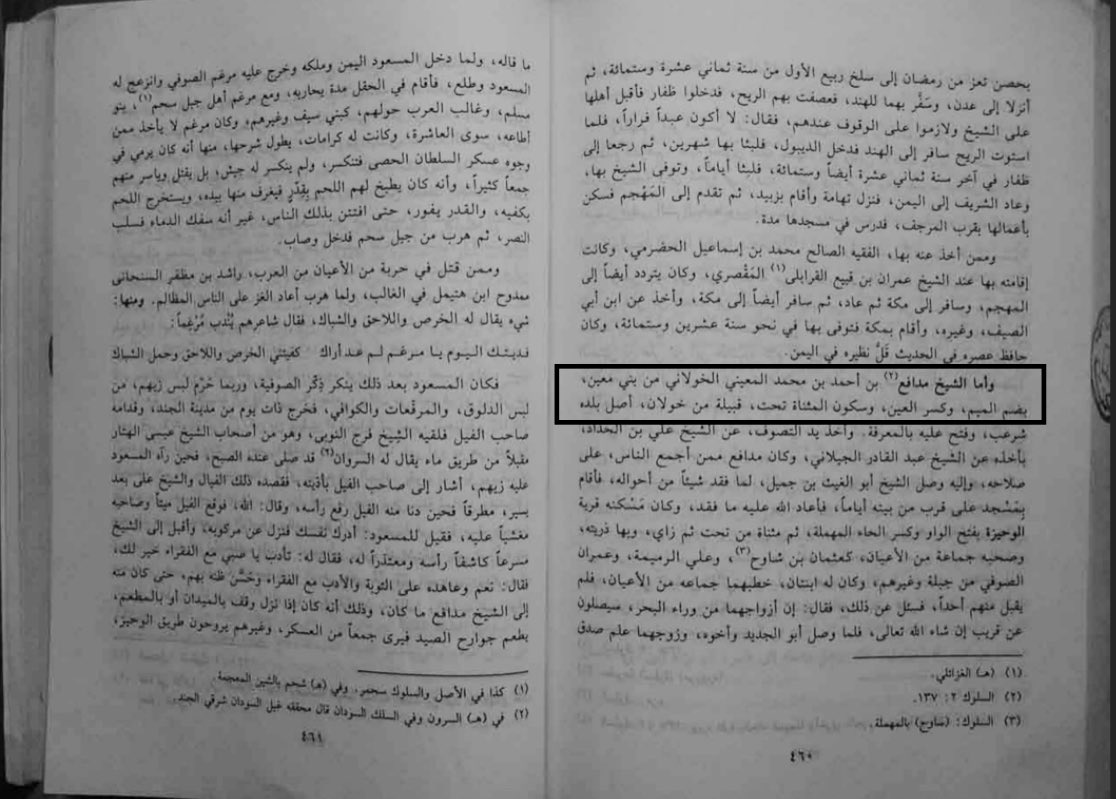 بحصن تعز من رمضان إلى سلخ ربيع الأول من سنة ثماني عشرة وستمائة، ثم
أنزلا إلى عدن، وسَفَّر بهما للهند، فعصفت بهم الريح، فدخلوا ظفار فأقبل أهلها
على الشيخ ولازموا على الوقوف عندهم، فقال: لا أكون عبداً فراراً، فلما
استوت الريح سافر إلى الهند فدخل الديبول، فلبثا بها شهرين، ثم رجعا إلى
ظفار في آخر سنة ثماني عشرة أيضاً وستمائة، فلبثا أياماً، وتوفى الشيخ بها،
وعاد الشريف إلى اليمن، فنزل تهامة وأقام بزبيد، ثم تقدم إلى المَهْجم فسكن
بأعمالها بقرب المرجف، فدرس في مسجدها مدة.
وممن أخذ عنه بها، الفقيه الصالح محمد بن إسماعيل الحضرمي، وكانت
إقامته بها عند الشيخ عمران بن قبيع القرابلى(١) المَقْصري، وكان يتردد أيضاً إلى
المهجم، وسافر إلى مكة ثم عاد، ثم سافر أيضاً إلى مكة، وأخذ عن ابن أبي
الصيف، وغيره، وأقام بمكة فتوفى بها في نحو سنة عشرين وستمائة، وكان
حافظ عصره في الحديث قَلَّ نظيره في اليمن.
وأما الشيخ مدافع(٢) بن أحمد بن محمد المعيني الخولاني من بني معين،
بضم الميم، وكسر العين، وسكون المثناة تحت، قبيلة من خولان، أصل بلده
شرعب، وفتح عليه بالمعرفة. وأخذ يد التصوف، عن الشيخ علي بن الحداد،
بأخذه عن الشيخ عبد القادر الجيلاني، وكان مدافع ممن أجمع الناس، على
صلاحه، وإليه وصل الشيخ أبو الغيث بن جميل، لما فقد شيئاً من أحواله، فأقام
بِمَسْجد على قرب من بيته أياماً، فأعاد الله عليه ما فقد، وكان مَسْكنه قرية
الوحيزة بفتح الواو وكسر الحاء المهملة، ثم مثناة من تحت ثم زاي، وبها ذريته،
وصحبه جماعة من الأعيان، كعثمان بن شاوح(٣)، وعلي الرميمة، وعمران
الصوفي من جبلة وغيرهم، وكان له ابنتان، خطبهما جماعه من الأعيان، فلم
يقبل منهم أحداً، فسئل عن ذلك، فقال: إن أزواجهما من وراء البحر، سيصلون
عن قريب إن شاء الله تعالى، فلما وصل أبو الجديد وأخوه، وزوجهما علم صدق
(١) (هـ) الغزائلي.
(٢) السلوك ٢: ١٣٧.
(٣) السلوك: (ساوح) بالمهملة.
٤٦٠
ما قاله، ولما دخل المسعود اليمن وملكه وخرج عليه مرغم الصوفي وانزعج له
المسعود وطلع، فأقام في الحقل مدة يحاربه، ومع مرغم أهل جبل سحم(١)، بنو
مسلم، وغالب العرب حولهم، كبني سيف وغيرهم، وكان مرغم لا يأخذ ممن
أطاعه، سوى العاشرة، وكانت له كرامات، يطول شرحها، منها أنه كان يرمي في
وجوه عسكر السلطان الحصى فتنكسر، ولم ينكسر له جيش، بل يقتل وياسر منهم
جمعاً كثيراً، وأنه كان يطبخ لهم اللحم بِقِدْرٍ فيغرف منها بيده، ويستخرج اللحم
بكفيه، والقدر يفور، حتى افتتن بذلك الناس، غير أنه سفك الدماء فسلب
النصر، ثم هرب من جبل سحم فدخل وصاب.
وممن قتل في حربة من الأعيان من العرب، راشد بن مظفر السنحانى
ممدوح ابن هتيمل في الغالب، ولما هرب أعاد الغز على الناس المظالم. ومنها:
شيء يقال له الخرص واللاحق والشباك، فقال شاعرهم يُنْدب مُرْغِماً:
فديتك اليوم يا مرغم لم عد أراك كفيتني الخرص واللاحق وحمل الشباك
فكان المسعود بعد ذلك ينكر ذِكْر الصوفية، وربما حُرْمَ لبس زيهم، من
لبس الدلوق، والمرقّعات والكوافي، فخرج ذات يوم من مدينة الجند، وقدامه
صاحب الفيل فلقيه الشيخ فرج النوبي، وهو من أصحاب الشيخ عيسى الهتار
مقبلاً من طريق ماء يقال له السروان(٢) قد صلى عنده الصبح، فحين رآه المسعود
عليه زيهم، أشار إلى صاحب الفيل بأذيته، فقصده ذلك الفيال والشيخ على بعد
يسير، مطرقاً فحين دنا منه الفيل رفع رأسه، وقال: الله، فوقع الفيل ميتاً وصاحبه
مغشياً عليه، فقيل للمسعود: أدرك نفسك فنزل عن مركوبه، وأقبل إلى الشيخ
مسرعاً كاشفاً رأسه ومعتذراً له، فقال له: تأدب يا صبي مع الفقراء خير لك،
فقال: نعم وعاهده على التوبة والأدب مع الفقراء وحَسَّن ظنه بهم، حتى كان منه
إلى الشيخ مدافع ما كان، وذلك أنه كان إذا نزل وقف بالميدان أو بالمطعم،
يطعم جوارح الصيد فيرى جمعاً من العسكر، وغيرهم يروحون طريق الوحيز،
(١) كذا في الأصل والسلوك سحمر، وفي (هـ) شحم بالشين المعجمة.
(٢) في (هـ) السرون وفي السلك السودان قال محققه غيل السودان شرقي الجند.
٤٦١